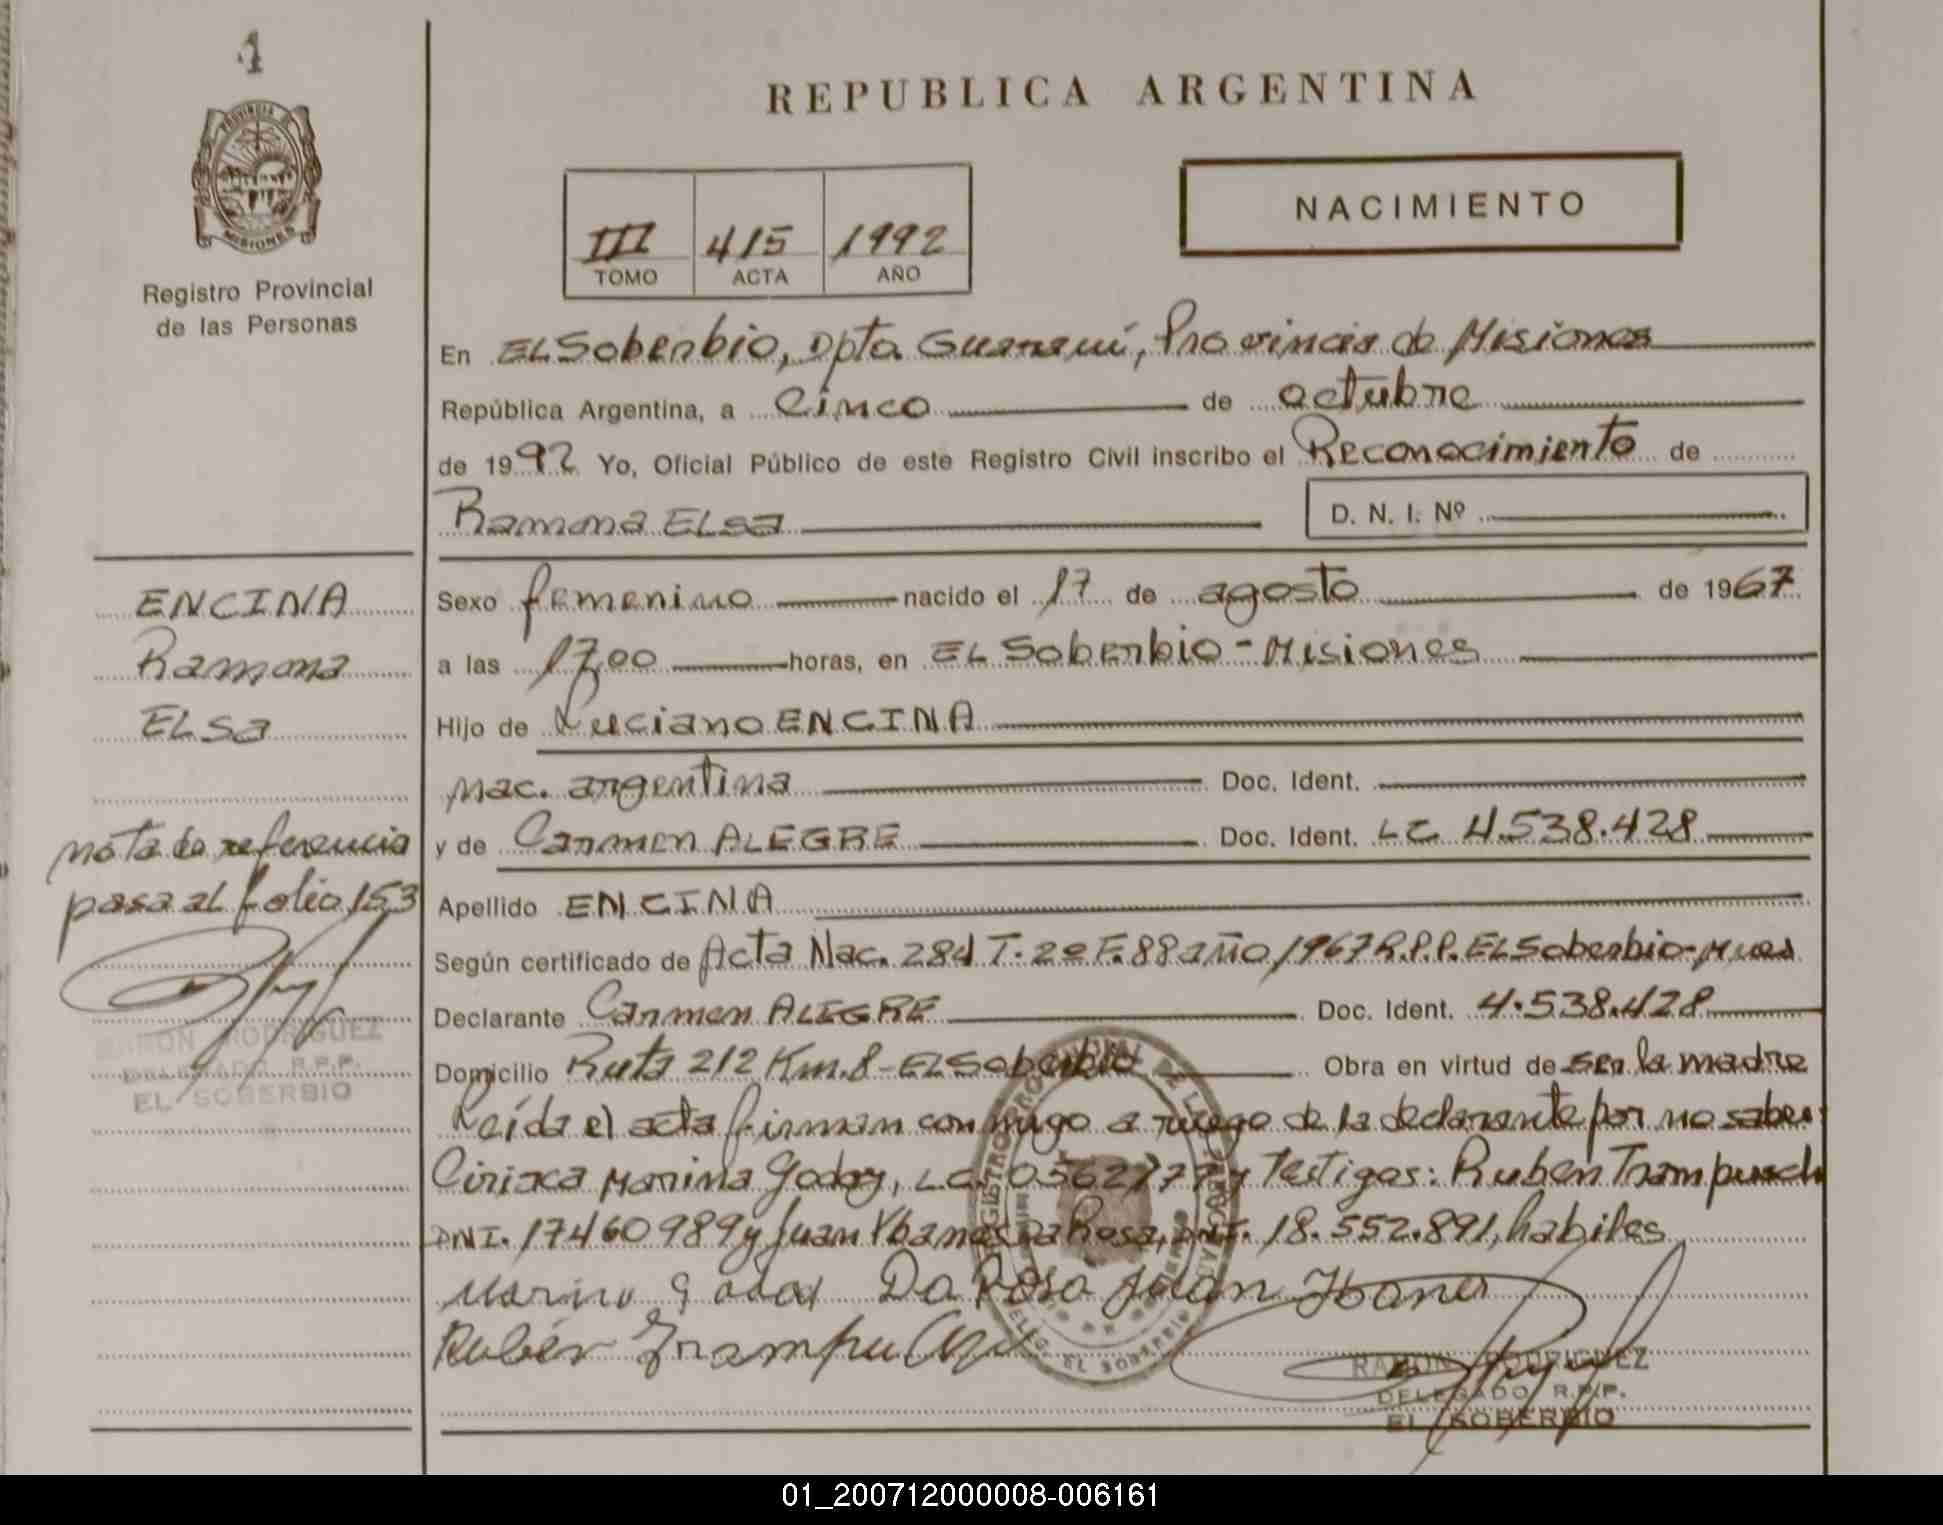 1
PROVINCIA DE
MISIONES
Registro Provincial
de las Personas
REPUBLICA ARGENTINA
NACIMIENTO
III 415 1992
TOMO ACTA AÑO
En El Soberbio, Dpto Guaraní, Provincia de Misiones
República Argentina, a Cinco de octubre
de 1992 Yo, Oficial Público de este Registro Civil inscribo el Reconocimiento de
Ramona ELsa D. N. I. Nº
ENCINA
Ramona
ELsa
nota de referencia
pasa al folio 153
RAMON RODRIGUEZ
DELEGADO R.P.P.
EL SOBERBIO
Sexo femenino nacido el 17 de agosto de 1967
a las 17,00 horas, en EL Soberbio - Misiones
Hijo de Luciano ENCINA
nac. argentina Doc. Ident.
y de Carmen ALEGRE Doc. Ident. LC 4.538.428
Apellido ENCINA
Según certificado de Acta Nac. 284 T. 2º F. 88 año 1967 R.P.P. EL Soberbio-
Declarante Carmen ALEGRE Doc. Ident. 4.538.428
Domicilio Ruta 212 Km. 8 - EL Soberbio Obra en virtud de ser la madre
Leída el acta firman conmigo a ruego de la declarante por no saber
Ciriaca Marina Godoy, LC y Testigos: Ruben Trampusch
DNI. 17460989 y Juan Ybanes Da Rosa, DNI. 18.552.891, habiles
Marina Godoy Da Rosa Juan Ibanes
Rubén Trampusch
DELEG. EL SOBERBIO
RAMON RODRIGUEZ
DELEGADO R.P.P.
EL SOBERBIO
01_200712000008-006161